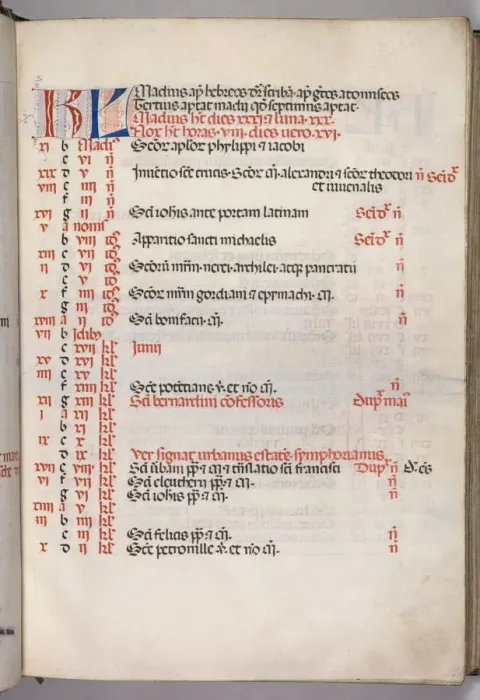 KL Madius ap hebreos dr̄ scriba ap gr̄cos atomiseos
Tertius aptat madii qd̄ septimus aptat
Madius h̄t dies XXXI et luna XXX
Nox h̄t horas VIII dies uero XVI
xi b Madii Sc̄or apl̄or phylippi et iacobi
c vi n̄
xix d v n̄ Inuentio sc̄e crucis Sc̄or m̄ alexandri et sc̄or theodori n̄
viii e iiii n̄ et iuuenalis
f iii n̄
xvi g ii n̄ Sc̄i ioh̄is ante portam latinam n̄
v a nonis
b viii id' Apparitio sancti michaelis n̄
xiii c vii id'
ii d vi id' Sc̄orū mr̄m nerei archilei atq pancratii n̄
e v id'
x f iiii id' Sc̄or mr̄m gordiani et epymachi m̄ n̄
g iii id'
xviii a ii id' Sc̄i bonifacii m̄ n̄
vii b Idib'
c xvii kl' Iunii
xv d xvi kl'
iiii e xv kl'
f xiiii kl' Sc̄e potētiane v̄ et no m̄ n̄
xii g xiii kl' Sc̄i bernardini cōfessoris dup maī
i a xii kl'
b xi kl'
ix c x kl'
d ix kl' Ver fugat urbanus estatē symphorianus
xvii e viii kl' Sc̄i urbani pp̄ et m̄ et trāslatio sc̄i francisci Dup n̄
vi f vii kl' Sc̄i eleutherii pp̄ et m̄
g vi kl' Sc̄i ioh̄is pp̄ et m̄ n̄
xiiii a v kl'
iii b iiii kl'
c iii kl' Sc̄i felicis pp̄ et m̄ n̄
x d ii kl' Sc̄e petronille v̄ et no m̄ n̄